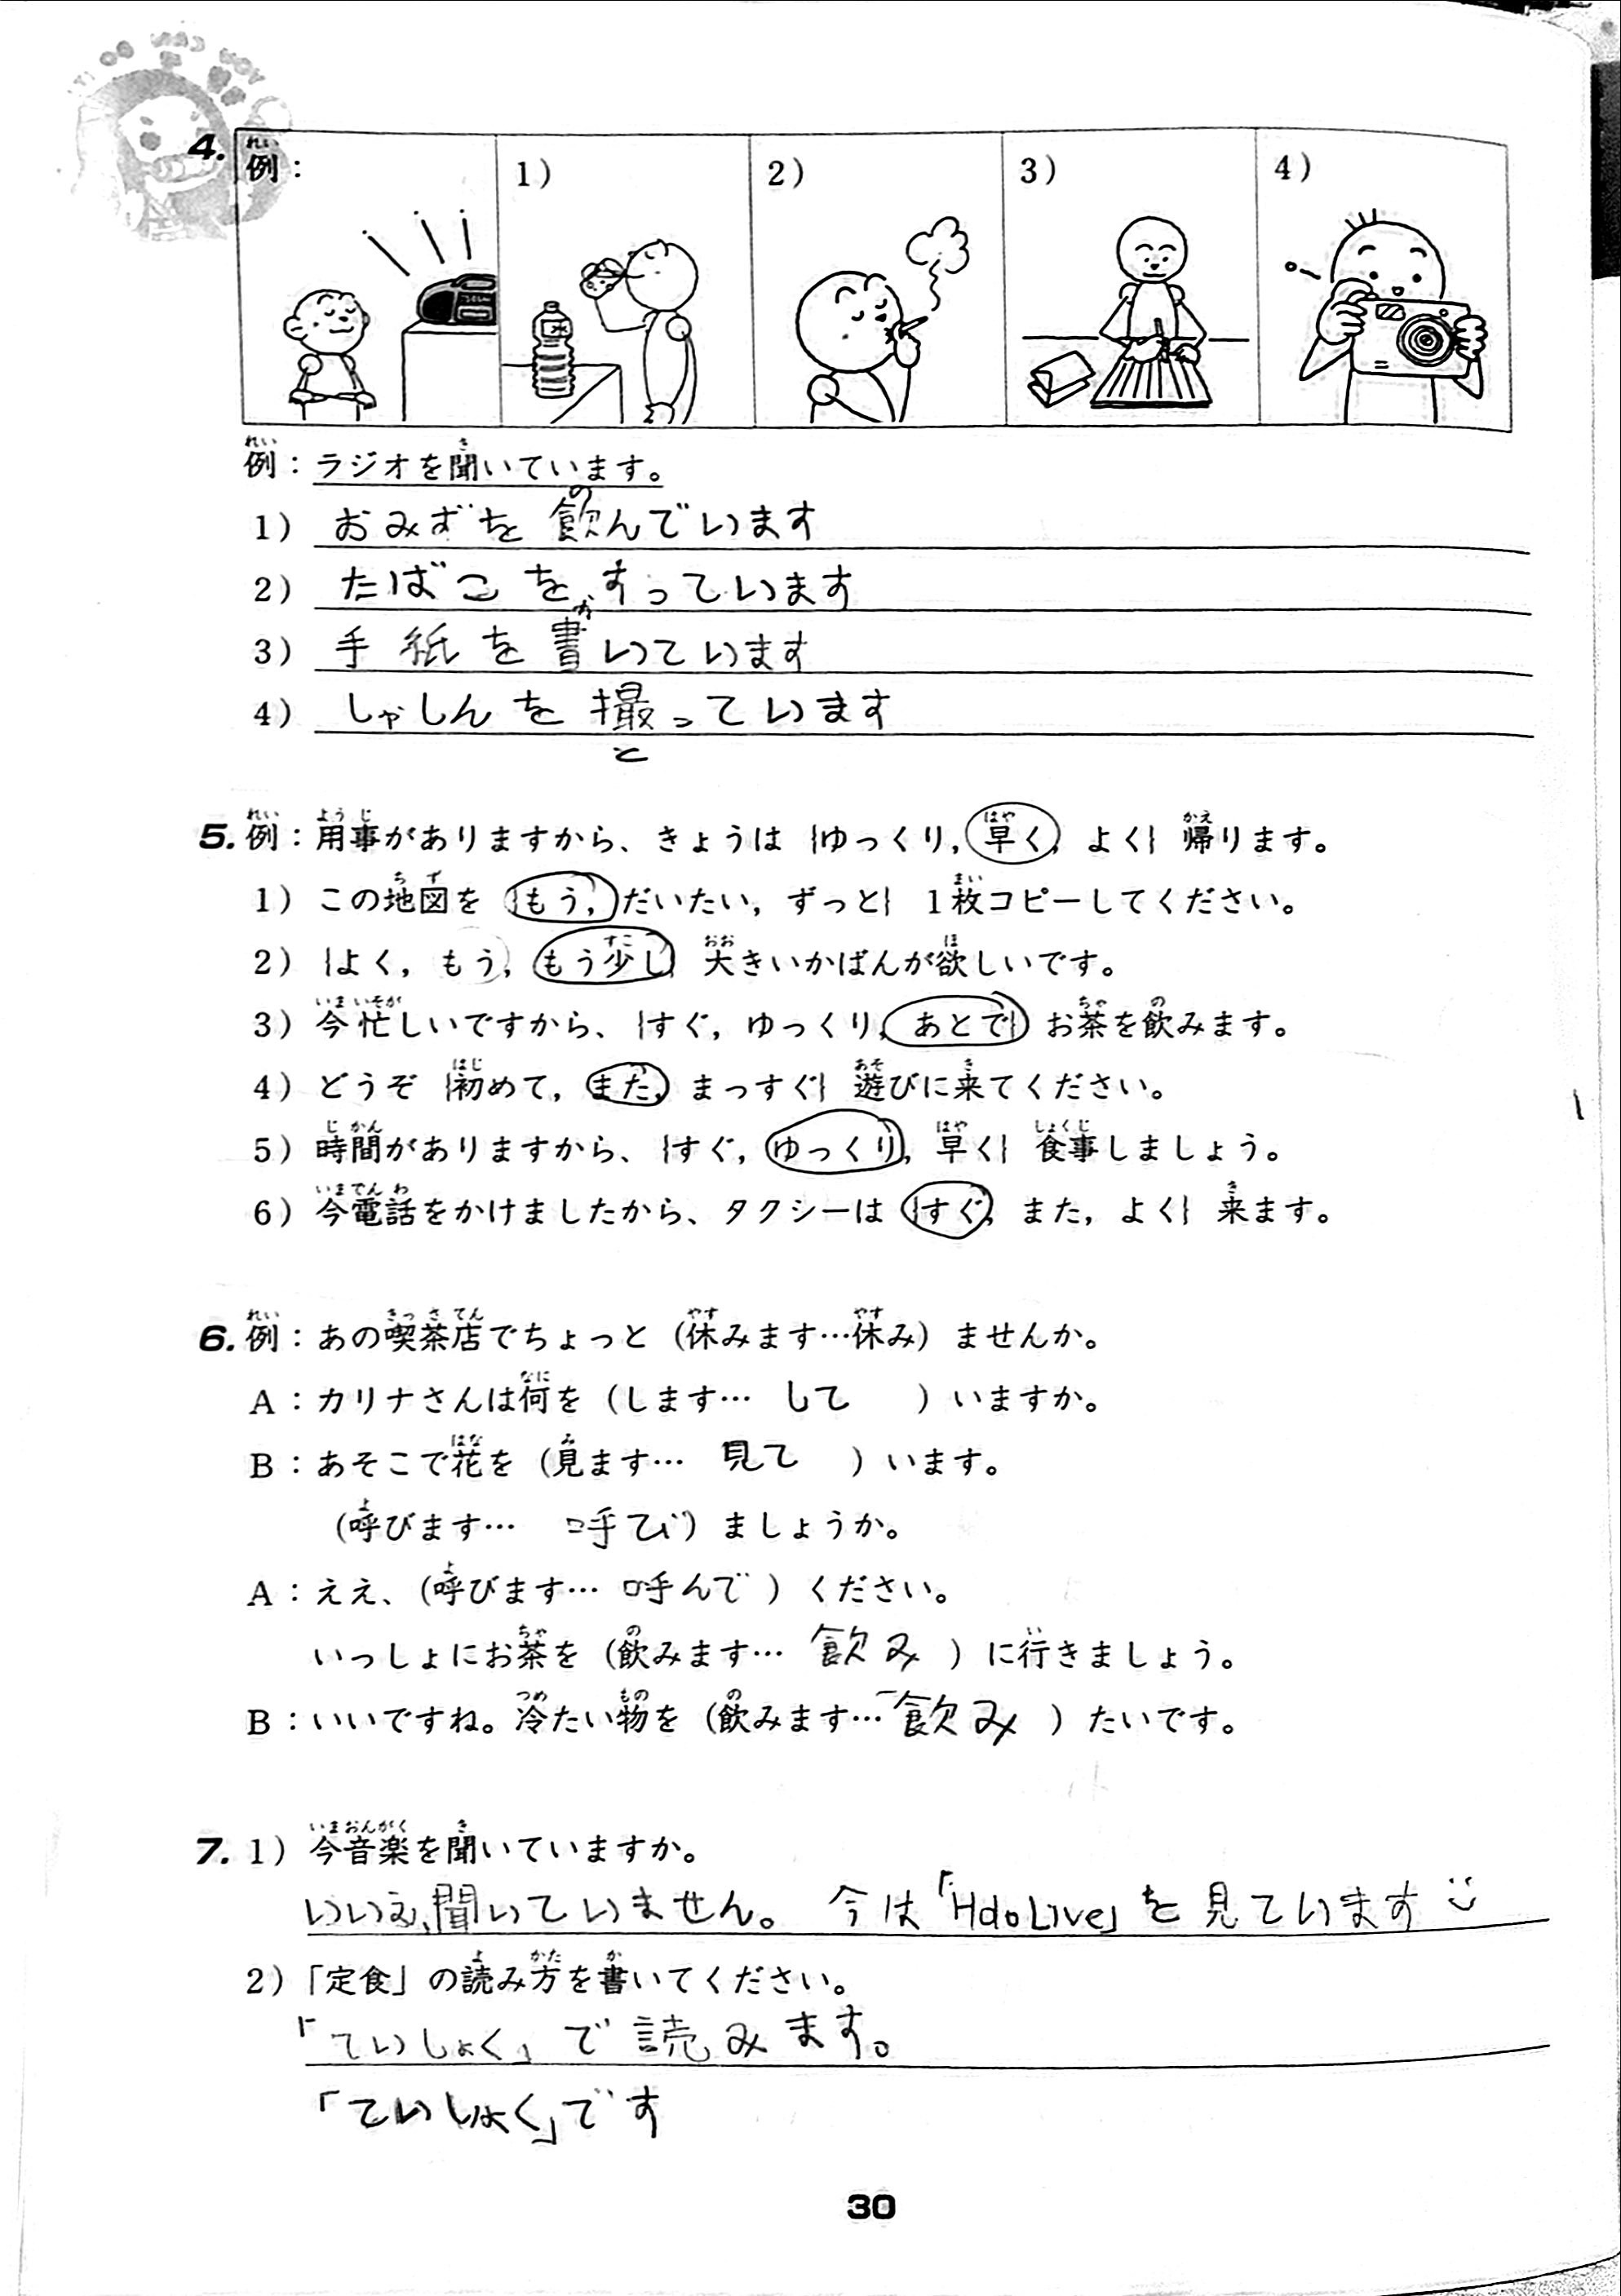 4. 例：
1）
2）
3）
4）
水
例：ラジオを聞いています。
1） おみずを飲んでいます
2） たばこをすっています
3） 手紙を書いています
4） しゃしんを撮っています
5. 例：用事がありますから、きょうは {ゆっくり, 早く, よく} 帰ります。
1） この地図を {もう, だいたい, ずっと} 1枚コピーしてください。
2） {よく, もう, もう少し} 大きいかばんが欲しいです。
3） 今忙しいですから、{すぐ, ゆっくり, あとで} お茶を飲みます。
4） どうぞ {初めて, また, まっすぐ} 遊びに来てください。
5） 時間がありますから、{すぐ, ゆっくり, 早く} 食事しましょう。
6） 今電話をかけましたから、タクシーは {すぐ, また, よく} 来ます。
6. 例：あの喫茶店でちょっと（休みます…休み）ませんか。
A：カリナさんは何を（します… して ）いますか。
B：あそこで花を（見ます… 見て ）います。
（呼びます… 呼び）ましょうか。
A：ええ、（呼びます… 呼んで ）ください。
いっしょにお茶を（飲みます… 飲み ）に行きましょう。
B：いいですね。冷たい物を（飲みます… 飲み ）たいです。
7. 1） 今音楽を聞いていますか。
いいえ、聞いていません。 今は「HdoLive」を見ています
2）「定食」の読み方を書いてください。
「ていしょく」で読みます。
「ていしょく」です
30